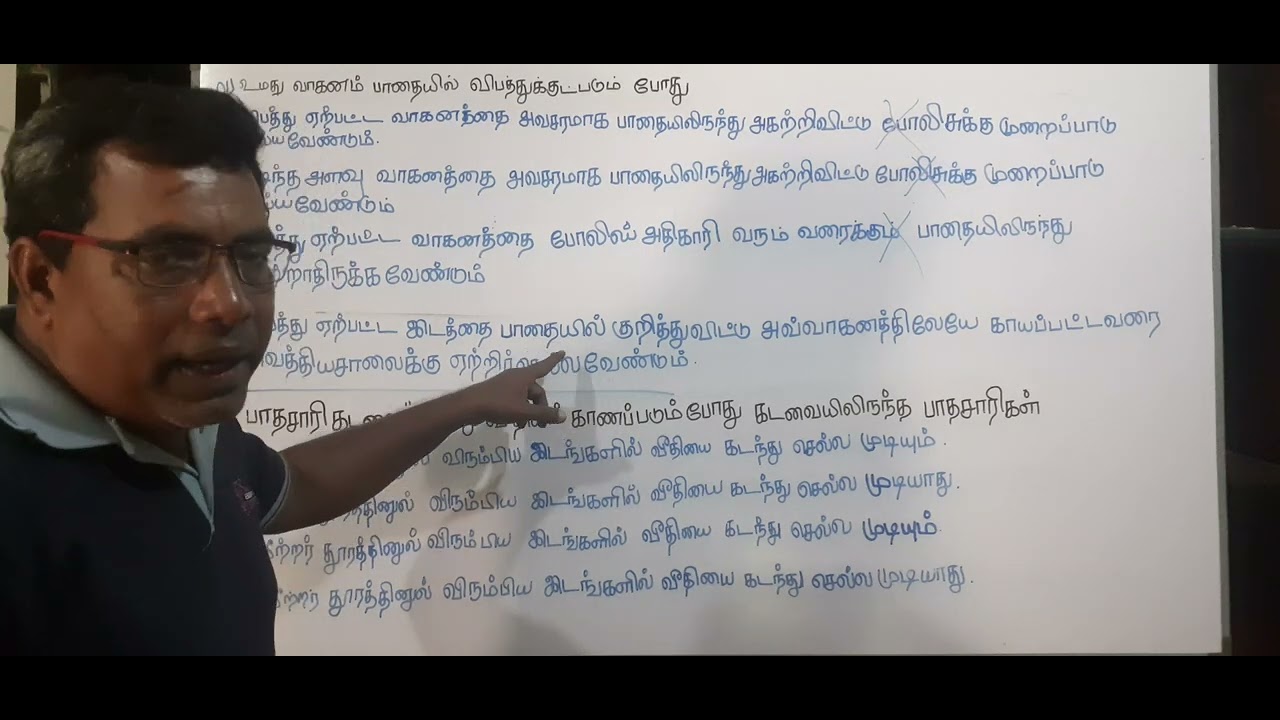 உமது வாகனம் பாதையில் விபத்துக்குட்படும் போது
ஏற்பட்ட வாகனத்தை அவசரமாக பாதையிலிருந்து அகற்றிவிட்டு போலிசுக்கு முறைப்பாடு
வேண்டும்.
அளவு வாகனத்தை அவசரமாக பாதையிலிருந்து அகற்றிவிட்டு போலிசுக்கு முறைப்பாடு
வேண்டும்
ஏற்பட்ட வாகனத்தை போலிஸ் அதிகாரி வரும் வரைக்கும் பாதையிலிருந்து
வேண்டும்
ஏற்பட்ட இடத்தை பாதையில் குறித்துவிட்டு அவ்வாகனத்திலேயே காயப்பட்டவரை
வேண்டும்.
பாதசாரி காணப்படும்போது கடவையிலிருந்த பாதசாரிகள்
விரும்பிய இடங்களில் வீதியை கடந்து செல்ல முடியும்.
விரும்பிய இடங்களில் வீதியை கடந்து செல்ல முடியாது.
தூரத்தினுல் விரும்பிய இடங்களில் வீதியை கடந்து செல்ல முடியும்.
தூரத்தினுல் விரும்பிய இடங்களில் வீதியை கடந்து செல்ல முடியாது.